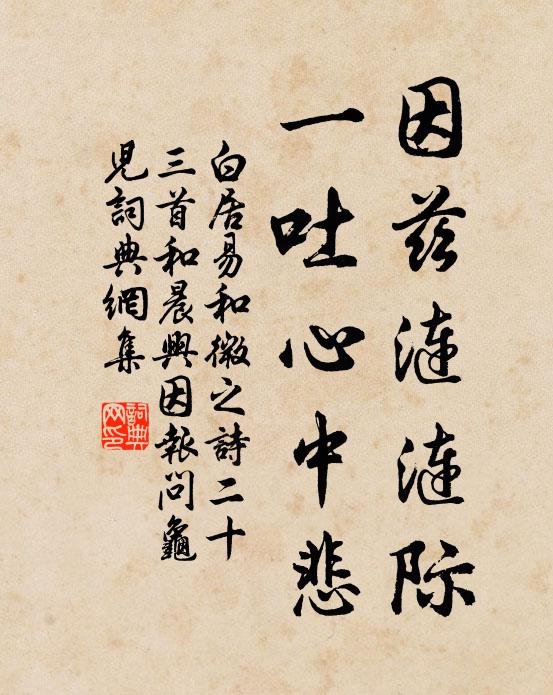 因兹涟涟际
一吐心中悲
白居易和微之詩二十
三首和晨興因報問龜
児詞典網集
詞典
网印